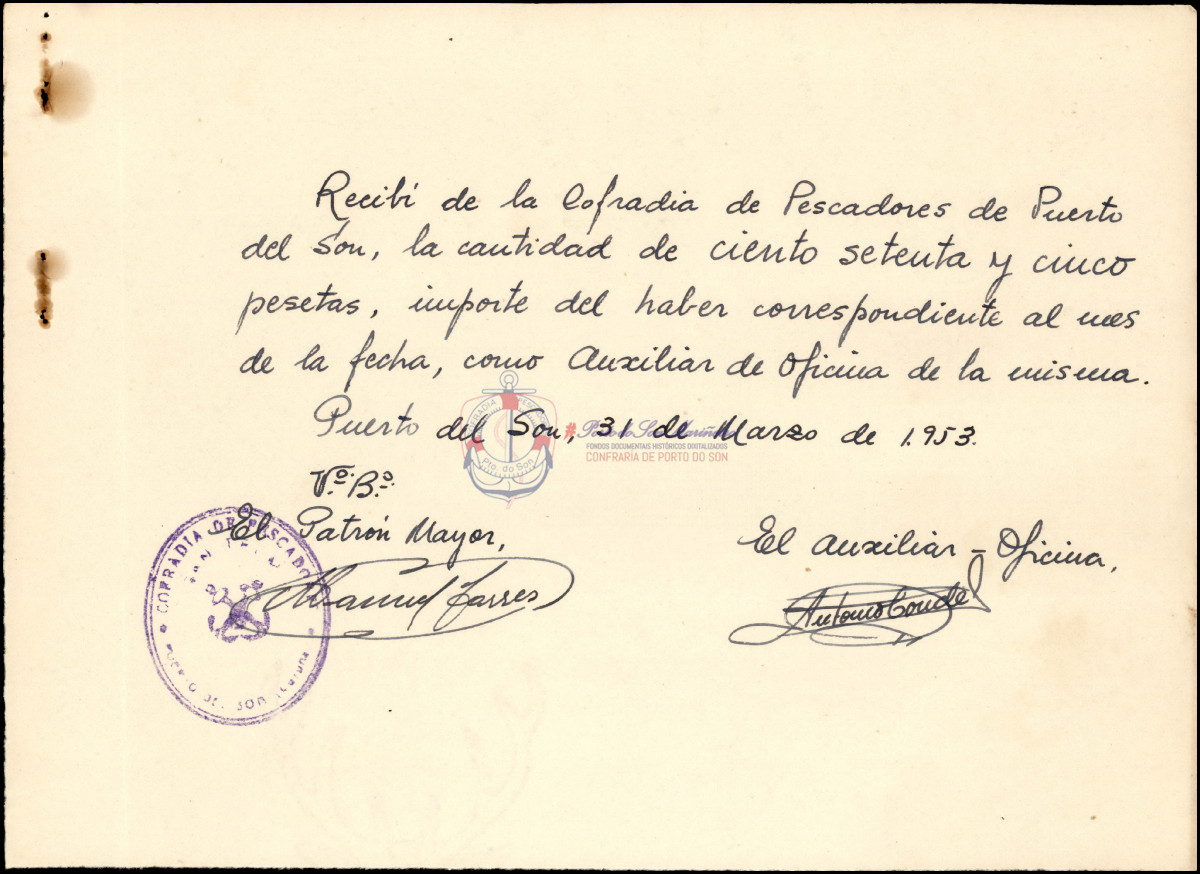 Recibí de la Cofradia de Pescadores de Puerto
del Son, la cantidad de ciento setenta y cinco
pesetas, importe del haber correspondiente al mes
de la fecha, como Auxiliar de Oficina de la misma.
Puerto del Son, 31 de Marzo de 1.953.
#
FONDOS DOCUMENTAIS HISTÓRICOS DIXITALIZADOS
CONFRARÍA DE PORTO DO SON
Pto. do Son
Vº. Bº.
El Patrón Mayor,
El Auxiliar - Oficina,
COFRADIA DE PESCADO
SON
Manuel
Antonio Conde